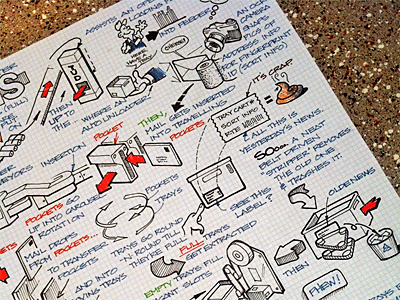 ASSISTS AN OPE
LOADING
INTO FEEDER
AN OCR
CAMERA
SNAPS
PICS OF
ADDRESS INFO
FOR FINGERPRINT
ID (SORT INFO)
CHERRY!
S
(FULL)
ARE
THEN
UP TO
THE
WHERE AN
AUTO UNLOADER
THEN,
MAIL
INTO
GETS INSERTED
TRAVELLING
POCKETS.
IT'S CRAP.
TRAY CARTE
SORT INFO
BTE
ALL THIS IS
YESTERDAY'S NEWS.
SOOOO... A NEAT
"STRIPPER" REMOVES
THE OLD ONE
& TRASHES IT.
POCKET
INSERTION
VEYORS
POCKETS GO
UP INTO CAROUSEL
ROTATION
POCKETS
TRAYS
SEE THIS
LABEL?
OLD NEWS
MAIL DROPS
FROM POCKETS...
TO TRANSFER
POCKETS
AND INTO
MOVING TRAYS
TRAYS GO ROUND
'N ROUND TILL
THEY'RE FULL.
FULL TRAYS
GET EXTRACTED
EMPTY TRAYS FILL
VACANT SLOTS
THEN
PHEW!